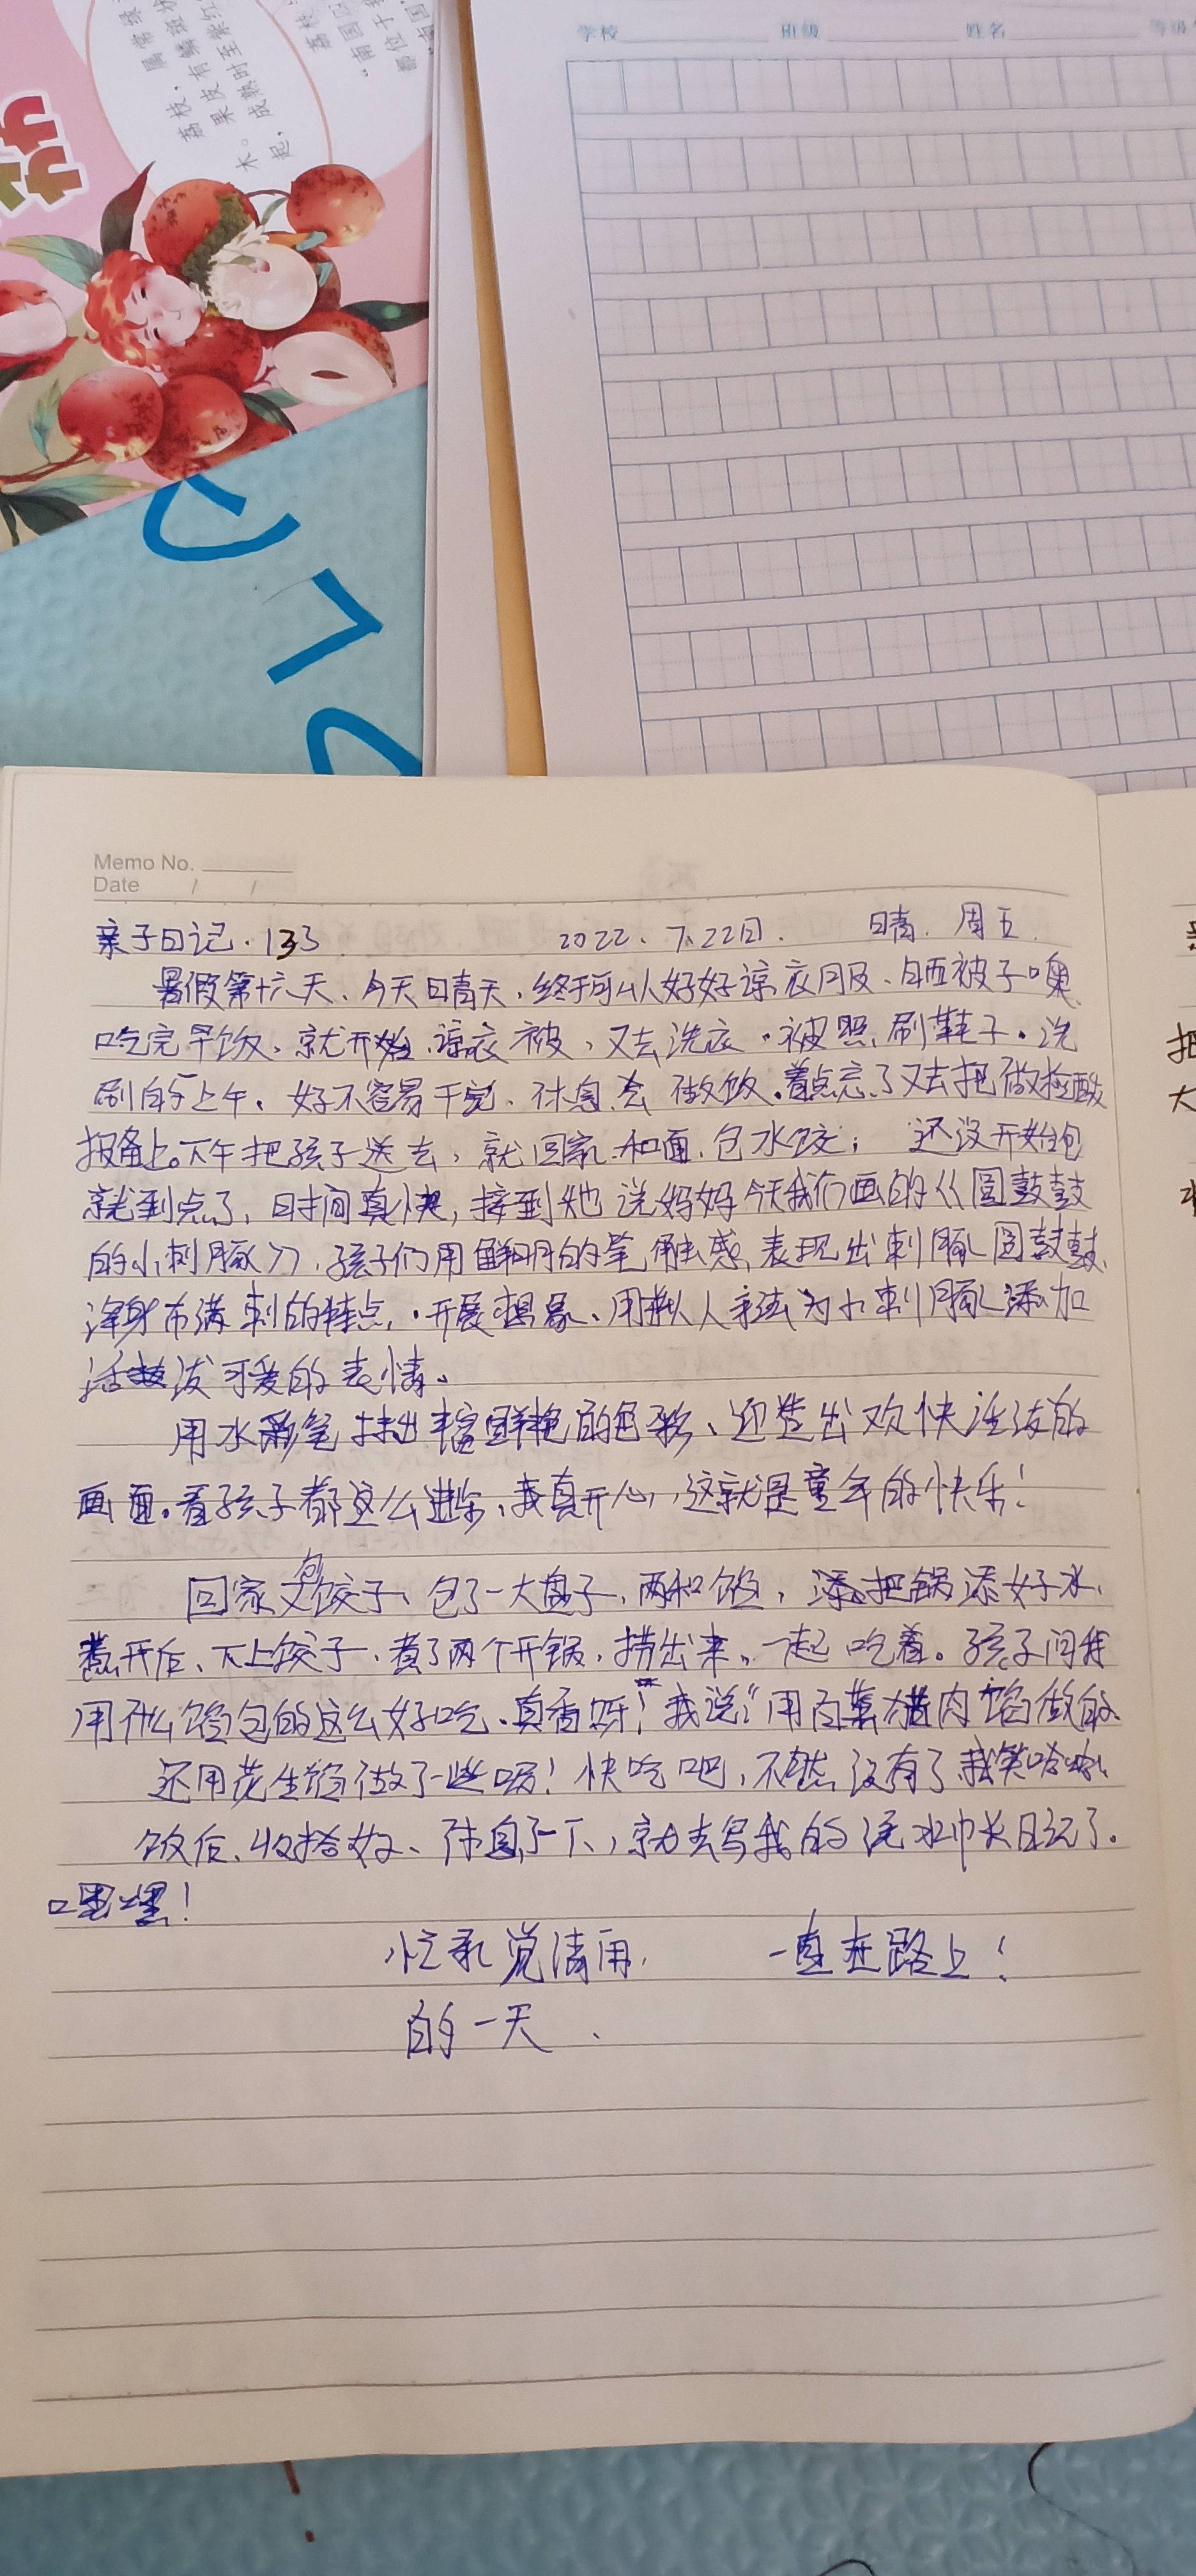 学校 班级 姓名
Memo No.
Date / /
亲子日记.133 2022.7.22日. 晴. 周五.
暑假第十六天、今天晴天,终于可以好好谅衣服、晒被子噢
吃完早饭、就开始谅衣被,又去洗衣。被罩、刷鞋子。洗
刷的上午。好不容易干完、休息会做饭.差点忘了又去把做核酸
报备上。下午把孩子送去,就回家和面.包水饺; 还没开始包
就到点了,时间真快,接到她说妈妈今天我们画的《圆鼓鼓
的小刺豚》,孩子们用鲜明的笔触感表现出刺豚圆鼓鼓、
浑身布满刺的特点,开展想象、用拟人手法为小刺豚添加
活泼可爱的表情。
用水彩笔 丰富鲜艳的色彩、 造出欢快活泼的
画面。看孩子都这么进步,我真开心,这就是童年的快乐!
回家包饺子、包了一大盘子,两和馅,把锅添好水、
煮开后、下上饺子,煮了两个开锅,捞出来。一起吃着。孩子问我
用什么馅包的这么好吃.真香呀!"我说:"用 猪肉馅做的
还用花生馅做了一些呢!快吃吧,不然没有了我笑哈哈
饭后、收拾好、休息了一下,就去写我的流水帐日记了。
嘿嘿!
忙 觉 一直在路上!
的一天.